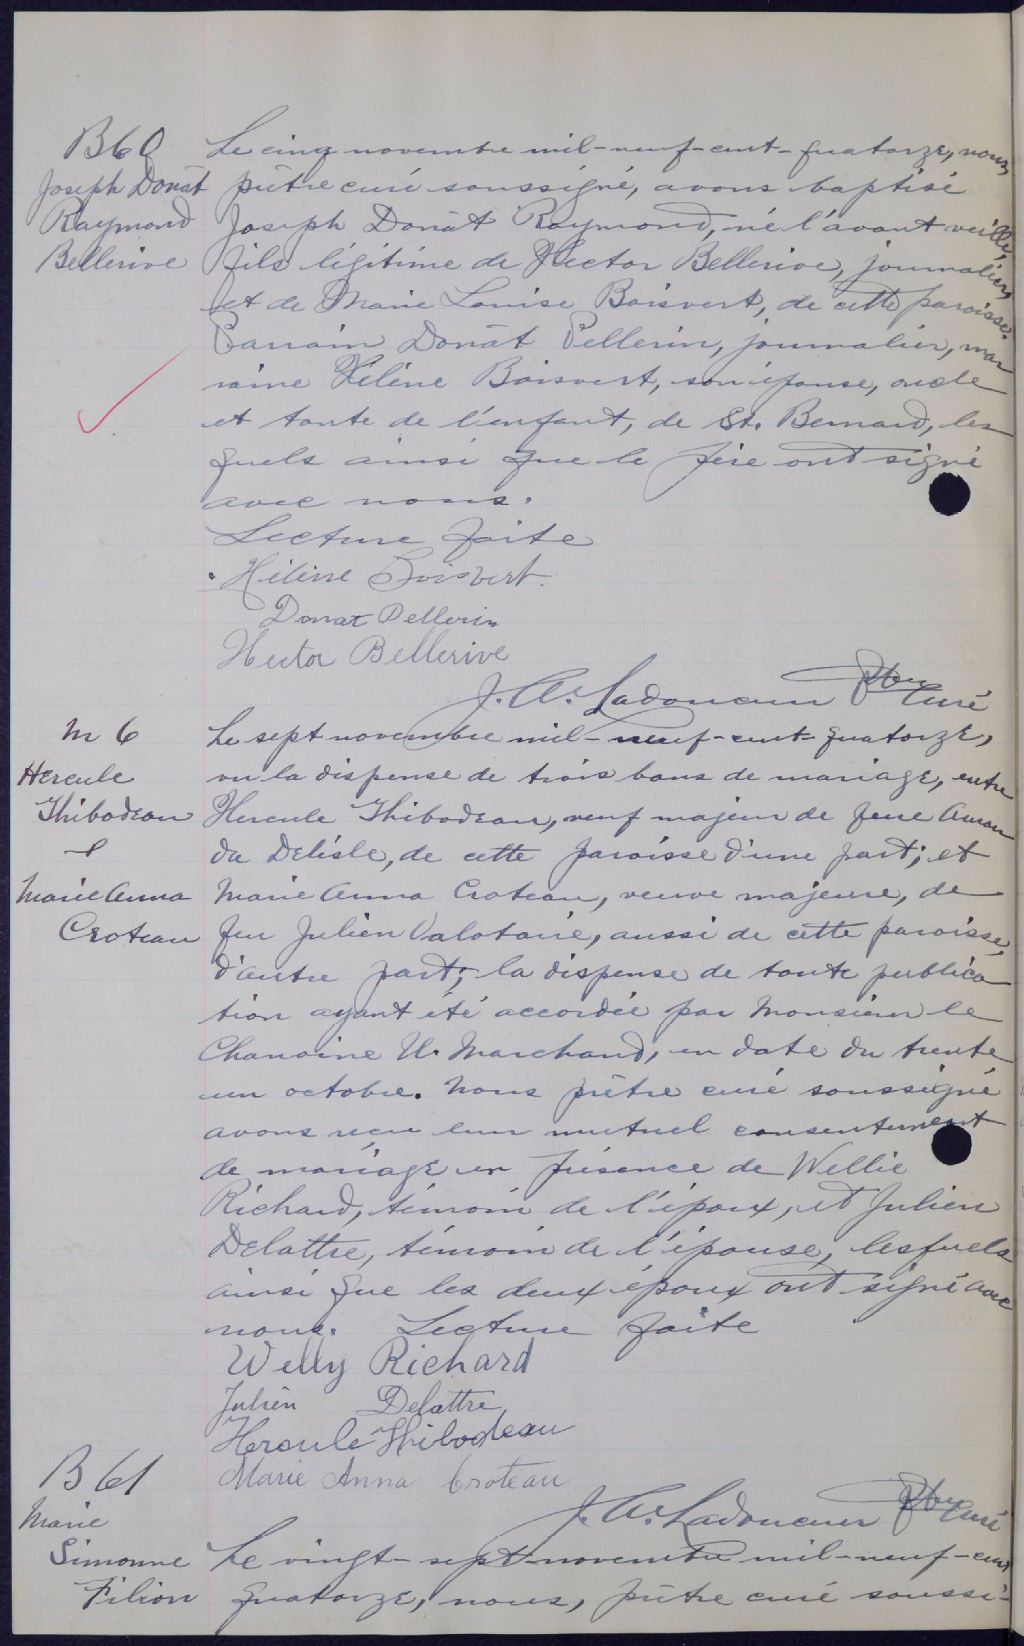 B60
Joseph Donat
Raymond
Bellerive
Le cinq novembre mil-neuf-cent-quatorze, nous,
prêtre curé soussigné, avons baptisé
Joseph Donat Raymond, né l'avant veille,
fils légitime de Hector Bellerive, journalier,
et de Marie Louise Boisvert, de cette paroisse.
Parrain Donat Pellerin, journalier, mar
raine Hélène Boisvert, son épouse, oncle
et tante de l'enfant, de St. Bernard, les
quels ainsi que le père ont signé
avec nous.
Lecture faite
Hélène Boisvert.
Donat Pellerin
Hector Bellerive
J. A. Ladouceur Ptre Curé
M 6
Hercule
Thibodeau
&
Marie Anna
Croteau
Le sept novembre mil-neuf-cent-quatorze,
vu la dispense de trois bans de mariage, entre
Hercule Thibodeau, veuf majeur de feue
da Delisle, de cette paroisse d'une part; et
Marie Anna Croteau, veuve majeure, de
feu Julien, aussi de cette paroisse,
d'autre part; la dispense de toute publica
tion ayant été accordée par Monsieur le
Chanoine U. Marchand, en date du trente
un octobre. Nous prêtre curé soussigné
avons reçu leur mutuel consentement
de mariage en présence de Wellie
Richard, témoin de l'époux, et Julien
Delattre, témoin de l'épouse, lesquels
ainsi que les deux époux ont signé avec
nous. Lecture faite
Welly Richard
Julien Delattre
Hercule Thibodeau
Marie Anna Croteau
J. A. Ladouceur Ptre Curé
B 61
Marie
Simonne
Filion
Le vingt-sept novembre mil-neuf-cent
quatorze, nous, prêtre curé soussi-